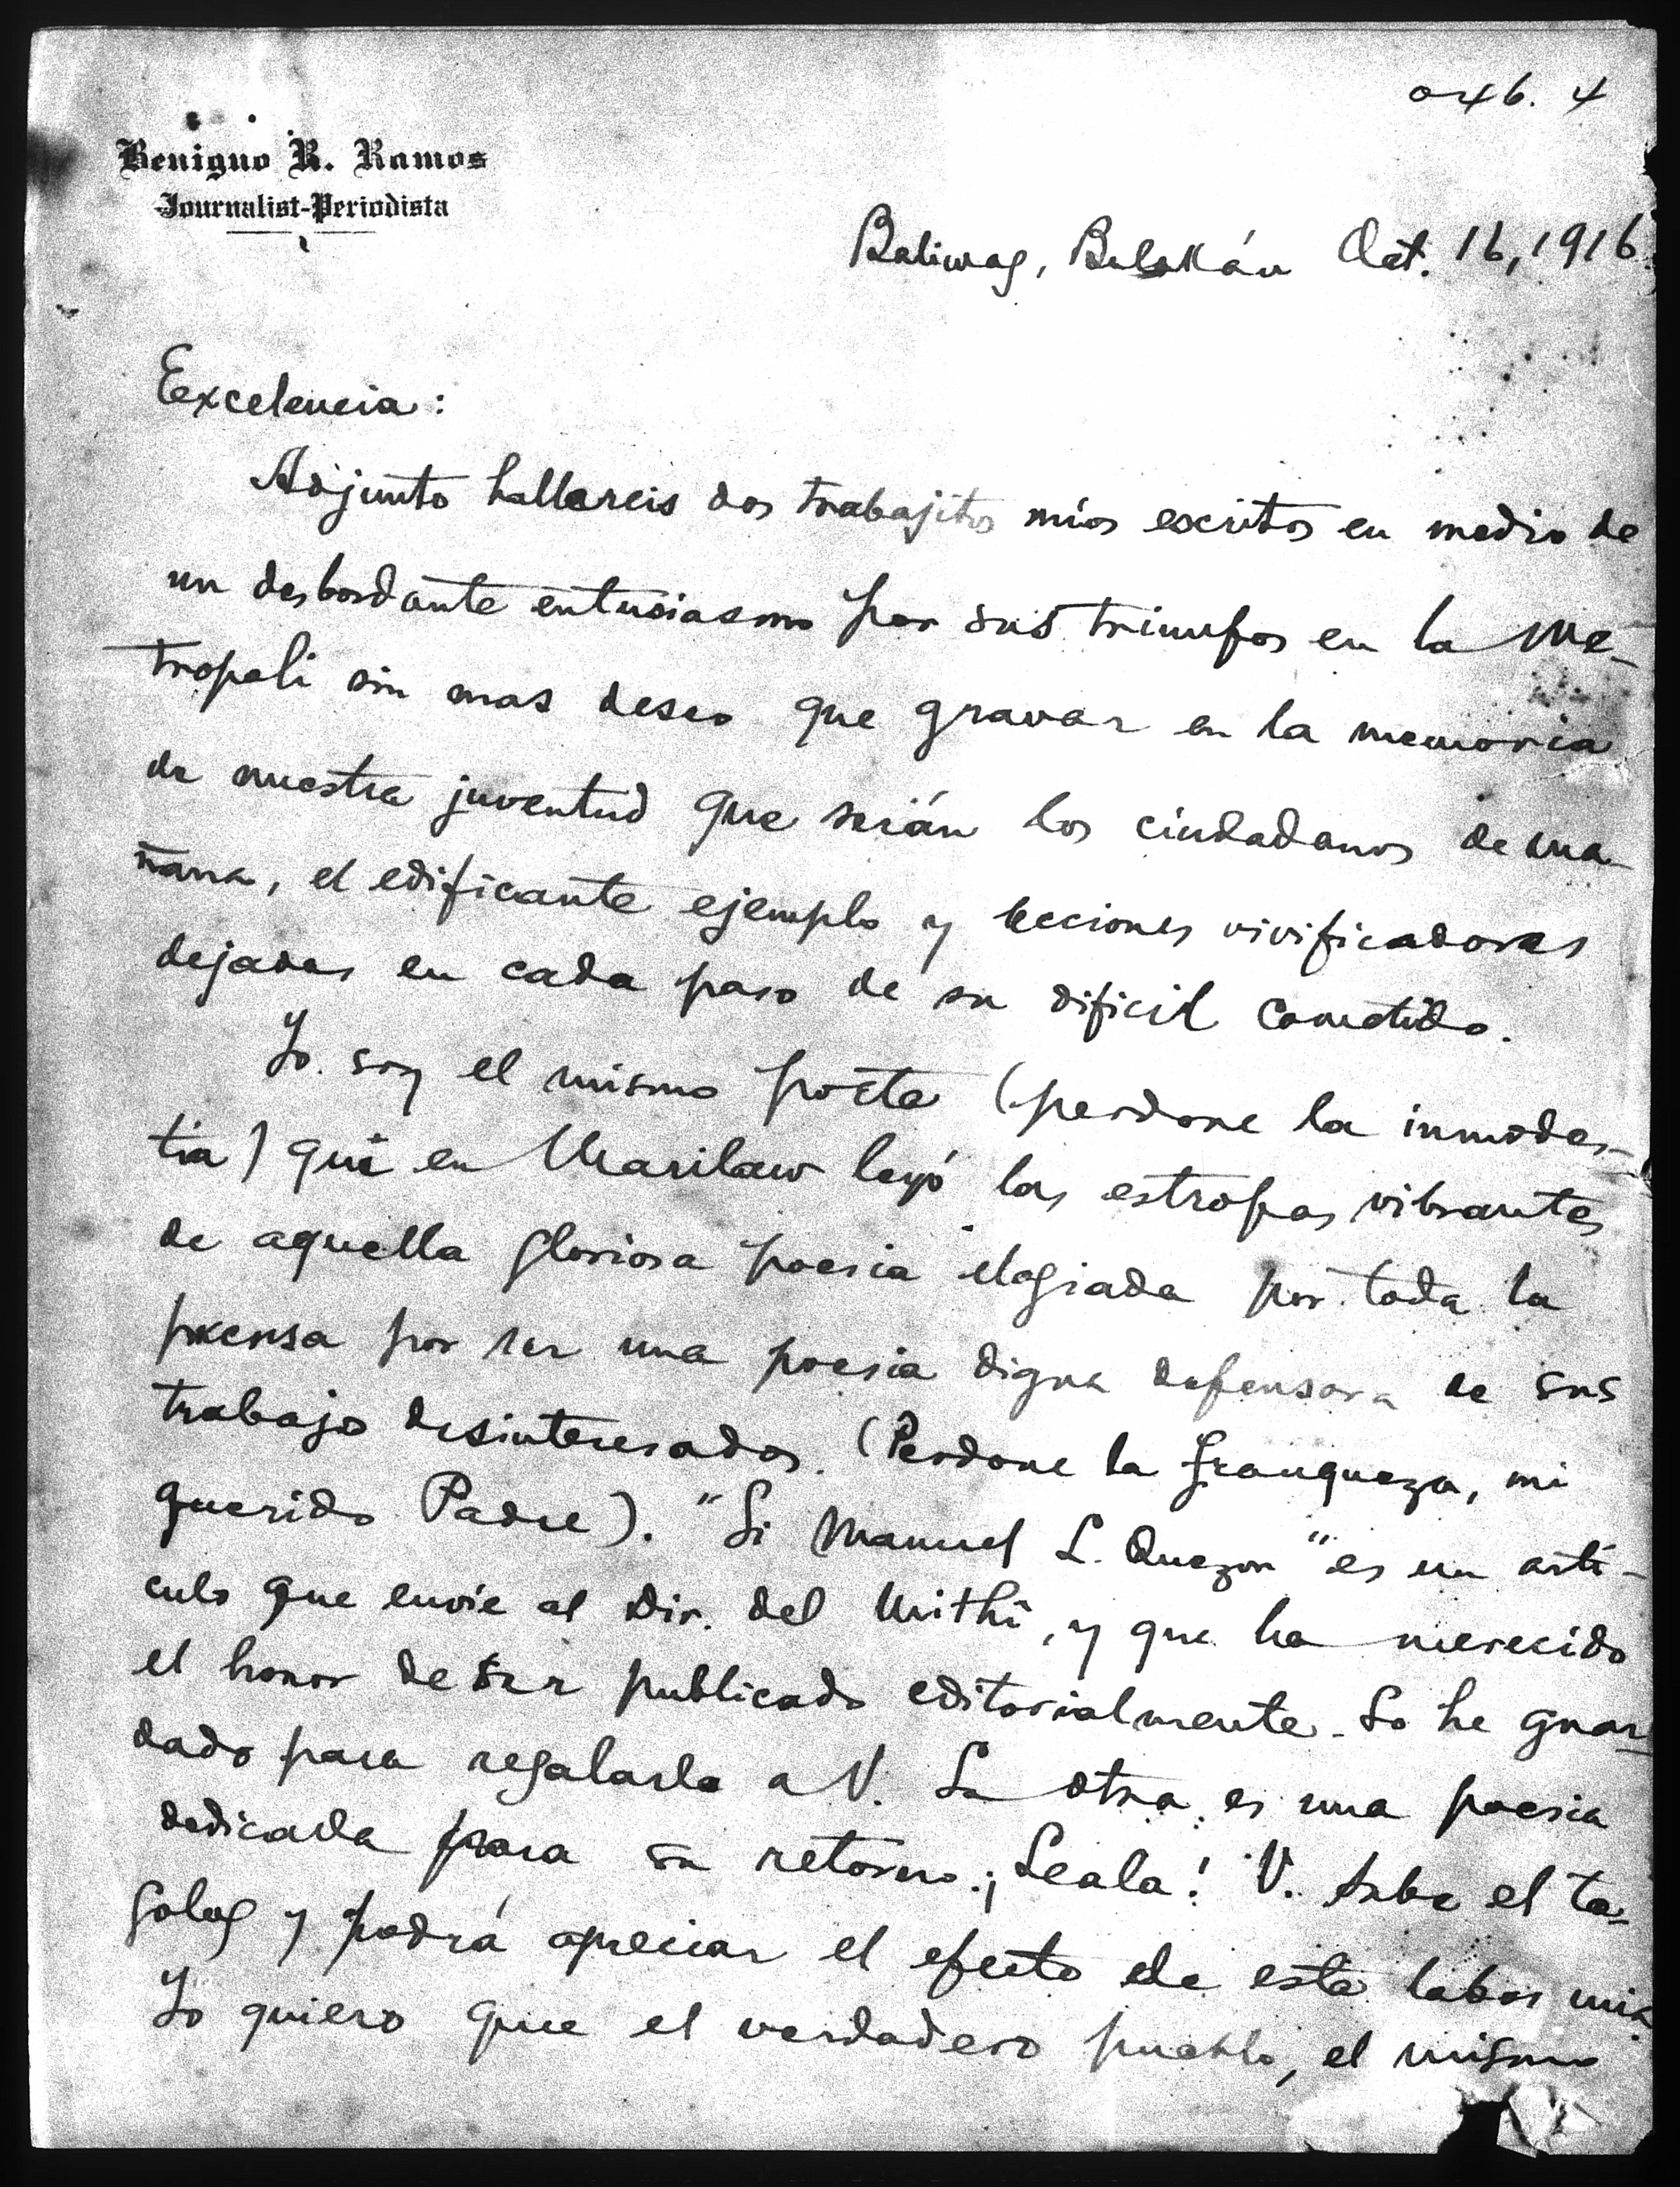 Benigno R. Ramos
Journalist-Periodista
Baliwag, Bulakán Oct. 16, 1916.
Excelencia:
Adjunto hallareis dos trabajitos míos escritos en medio de
un desbordante entusiasmo por sus triunfos en la Me-
tropoli sin mas deseo que gravar en la memoria
de nuestra juventud que serán los ciudadanos de ma-
ñana, el edificante ejemplo y lecciones vivificadoras
dejadas en cada paso de su dificil cometido.
Yo soy el mismo poeta (perdone la inmodes-
tia) que en Marilaw leyó las estrofas vibrantes
de aquella gloriosa poesia elogiada por toda la
prensa por ser una poesia digna defensora de sus
trabajos desinteresados. (Perdone la franqueza, mi
querido Padre). "Si Manuel L. Quezon" es un artí-
culo que envie al Dir. del Mithî, y que ha merecido
el honor de ser publicado editorialmente. Lo he guar-
dado para regalarlo a V. La otra es una poesia
dedicada para su retorno. ¡Leala! V. sabe el ta-
galog y podrá apreciar el efecto de esta labor mia.
Yo quiero que el verdadero pueblo, el mismo